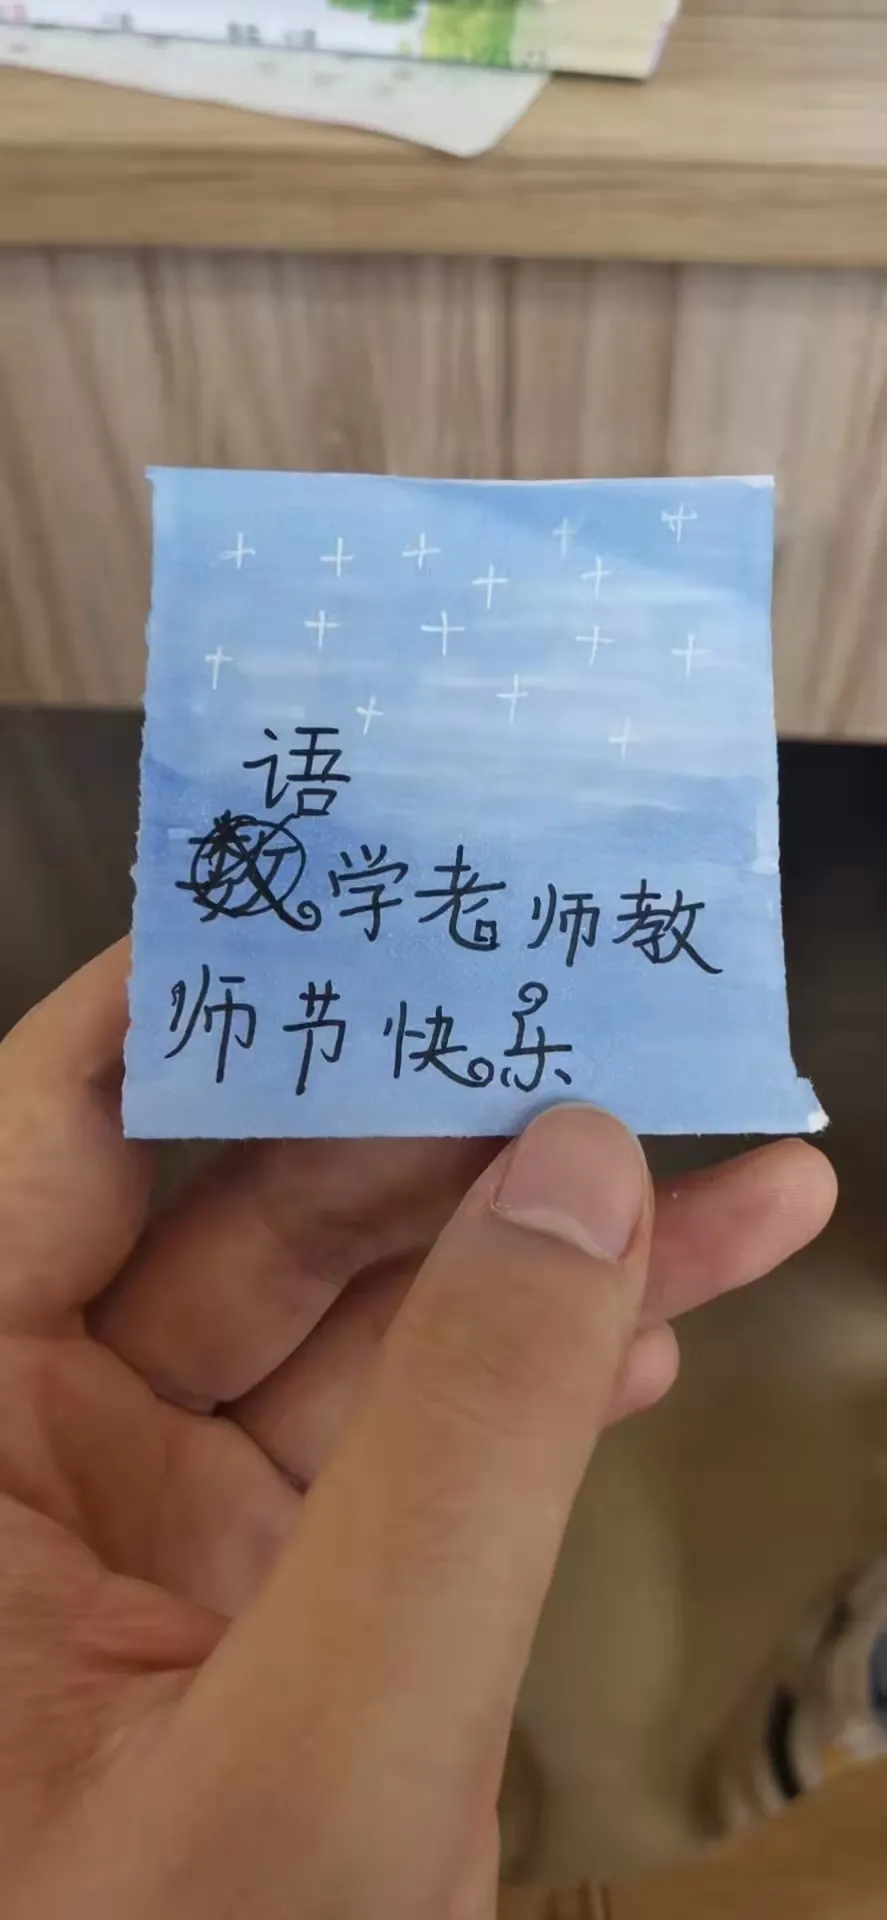 语
数学老师教
师节快乐